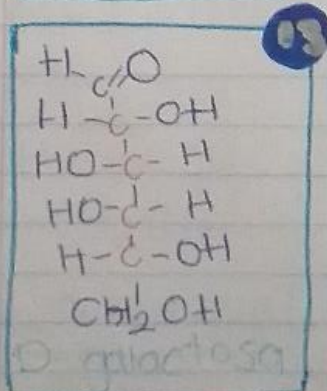 03
H C=O
H-C-OH
HO-C-H
HO-C-H
H-C-OH
CH2OH
D galactosa